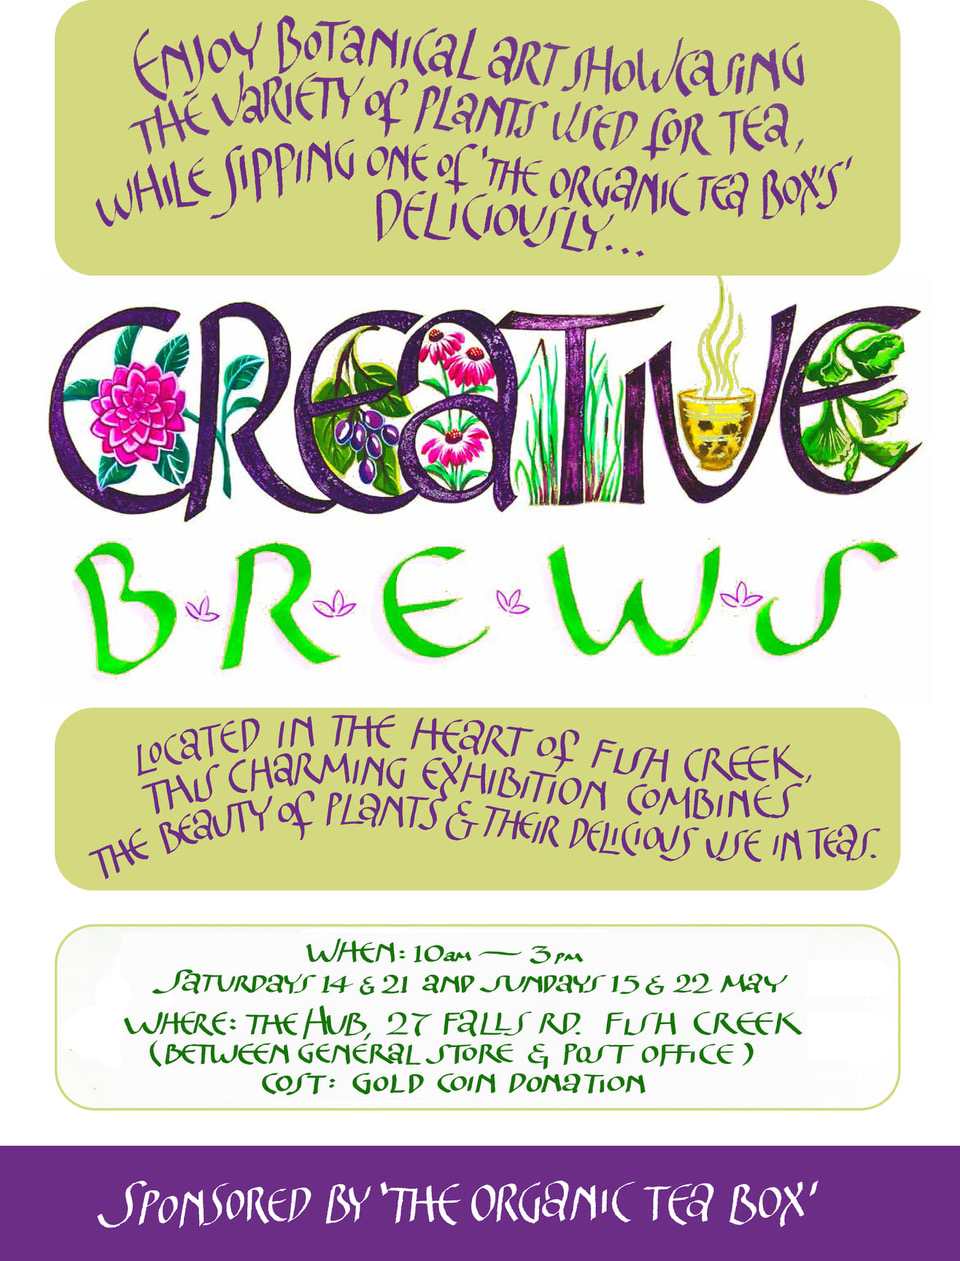 ENJOY BOTANICAL ART SHOWCASING
THE VARIETY OF PLANTS USED FOR TEA,
WHILE SIPPING ONE OF 'THE ORGANIC TEA BOX'S'
DELICIOUSLY...
CREATIVE
BREWS
LOCATED IN THE HEART OF FISH CREEK,
THIS CHARMING EXHIBITION COMBINES
THE BEAUTY OF PLANTS & THEIR DELICIOUS USE IN TEAS.
WHEN: 10am — 3pm
SATURDAYS 14 & 21 AND SUNDAYS 15 & 22 MAY
WHERE: THE HUB, 27 FALLS RD. FISH CREEK
(BETWEEN GENERAL STORE & POST OFFICE)
COST: GOLD COIN DONATION
SPONSORED BY 'THE ORGANIC TEA BOX'